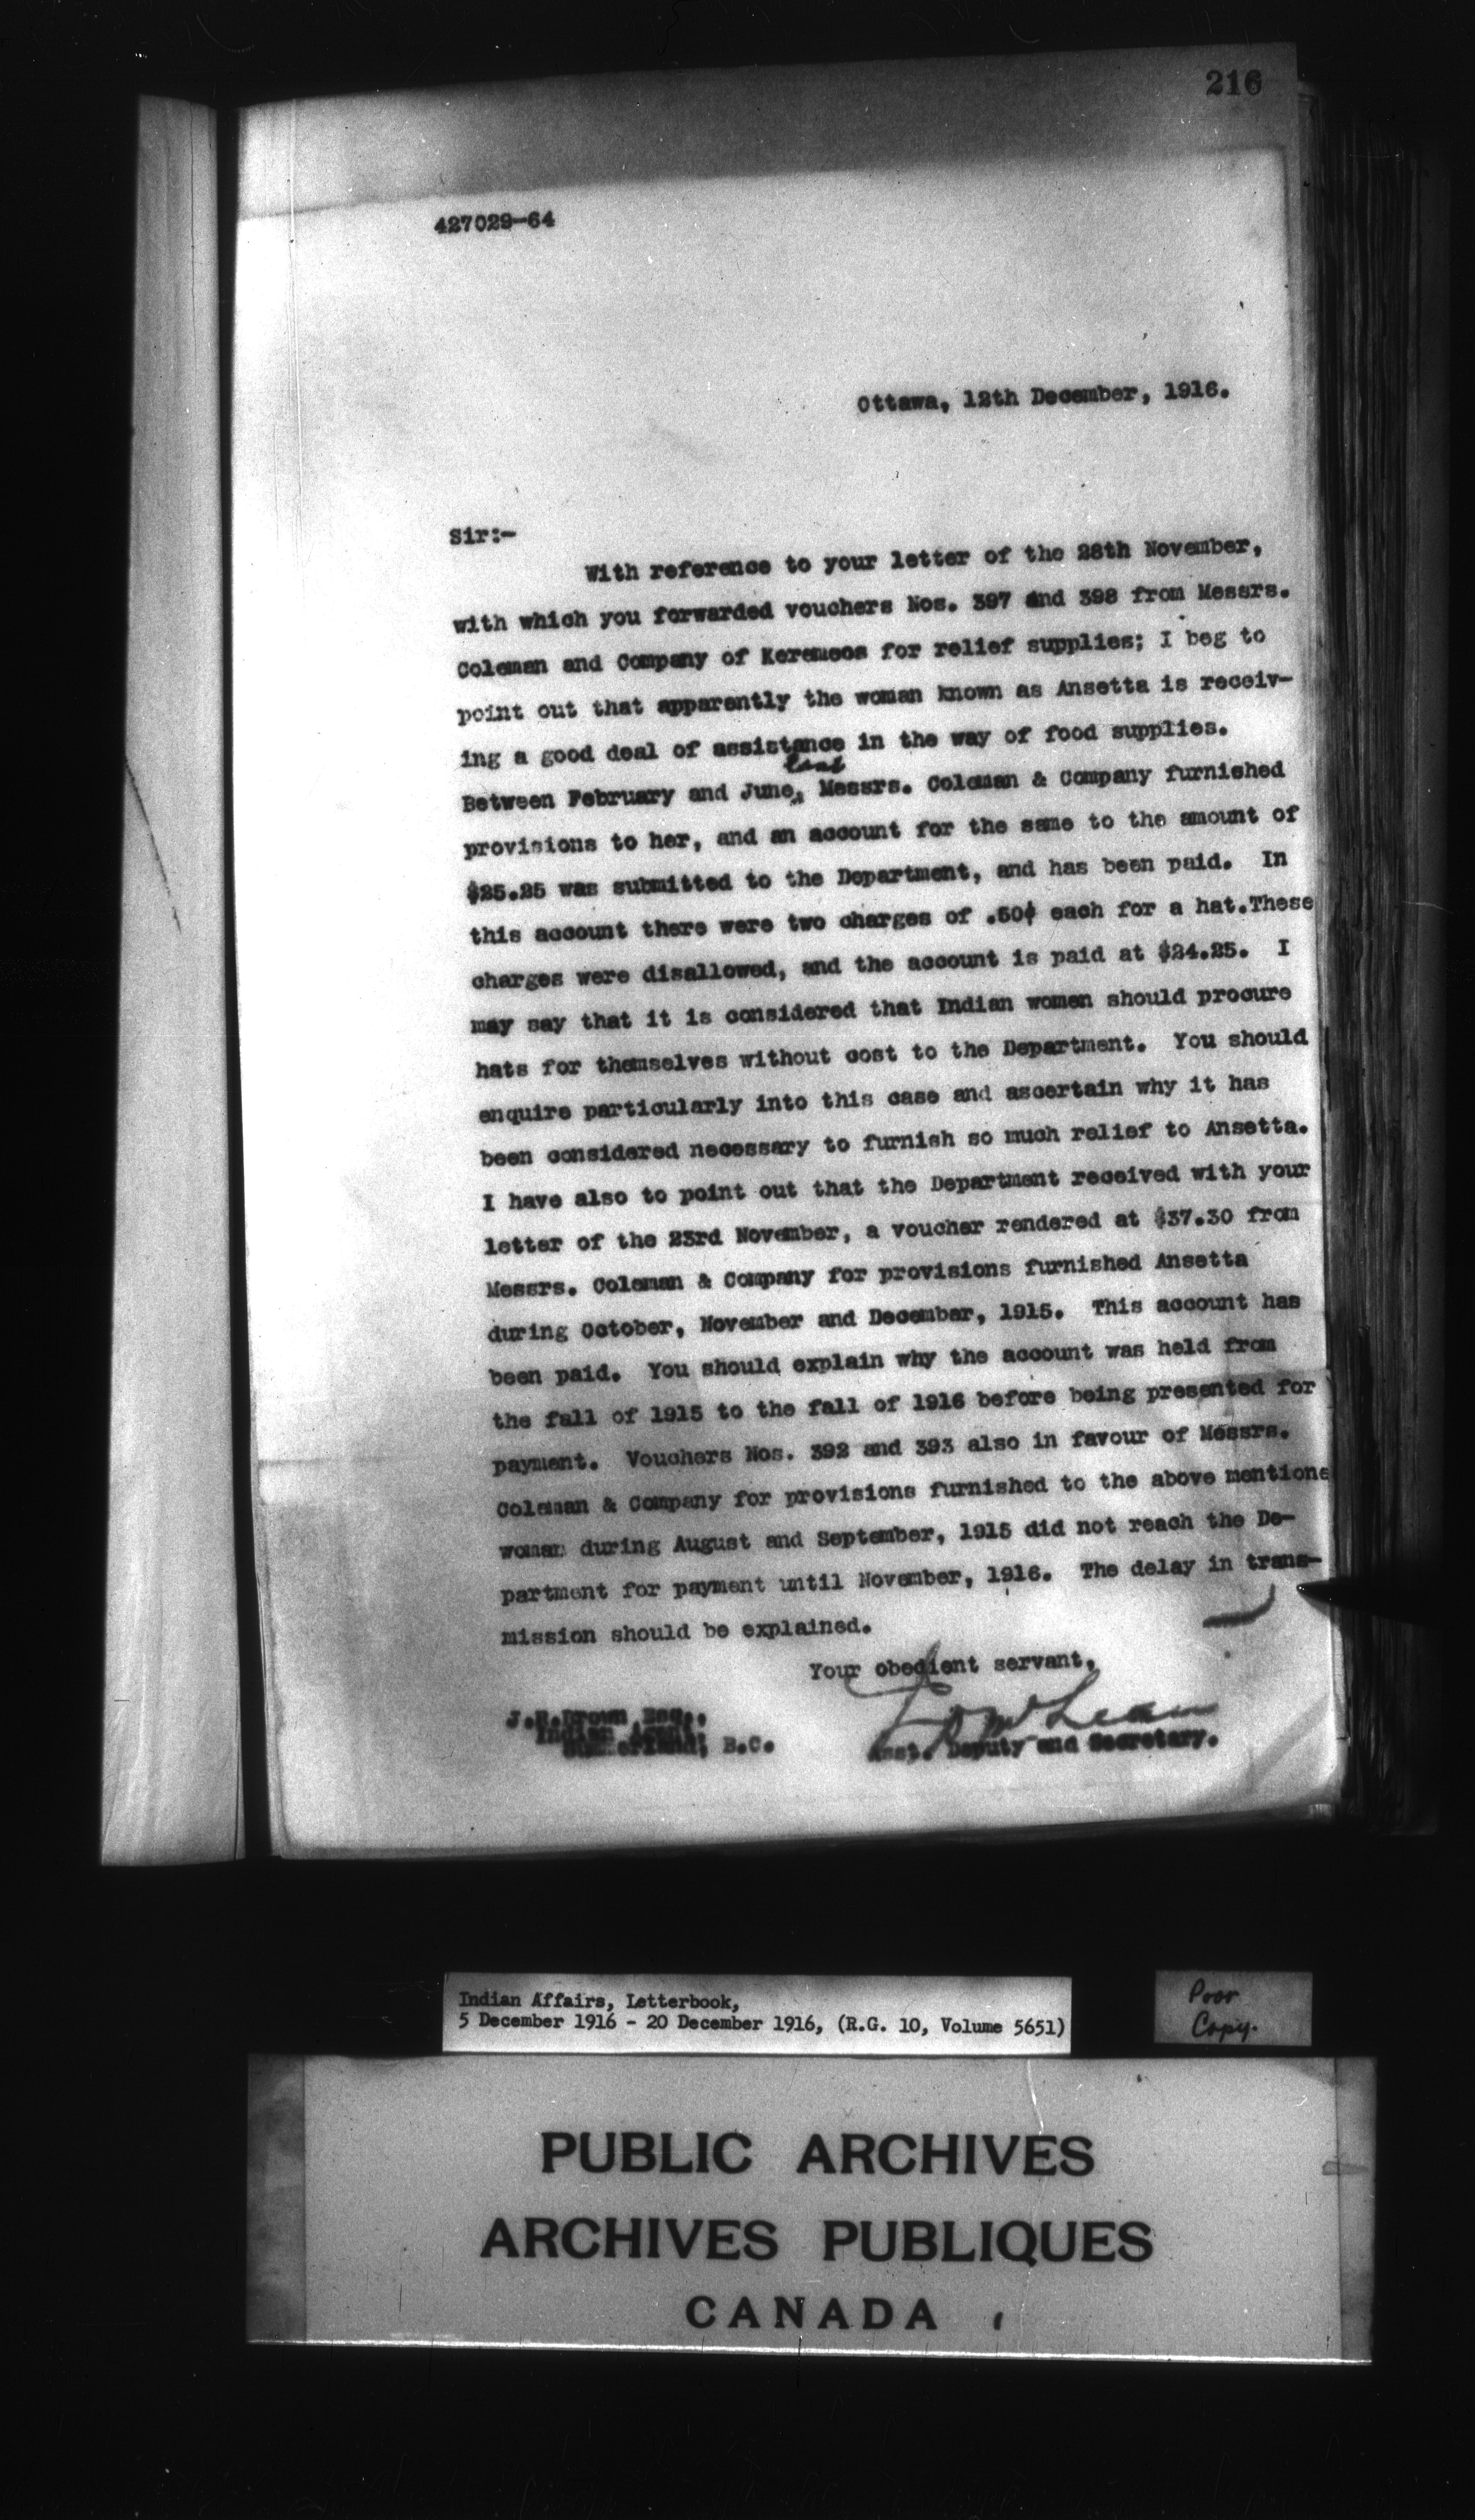 216
427029-64
Ottawa, 12th December, 1916.
Sir:-
With reference to your letter of the 28th November,
with which you forwarded vouchers Nos. 397 and 398 from Messrs.
Coleman and Company of Keremeos for relief supplies; I beg to
point out that apparently the woman known as Ansetta is receiv-
ing a good deal of assistance in the way of food supplies.
last
Between February and June, Messrs. Coleman & Company furnished
provisions to her, and an account for the same to the amount of
$25.25 was submitted to the Department, and has been paid. In
this account there were two charges of .50¢ each for a hat.These
charges were disallowed, and the account is paid at $24.25. I
may say that it is considered that Indian women should procure
hats for themselves without cost to the Department. You should
enquire particularly into this case and ascertain why it has
been considered necessary to furnish so much relief to Ansetta.
I have also to point out that the Department received with your
letter of the 23rd November, a voucher rendered at $37.30 from
Messrs. Coleman & Company for provisions furnished Ansetta
during October, November and December, 1915. This account has
been paid. You should explain why the account was held from
the fall of 1915 to the fall of 1916 before being presented for
payment. Vouchers Nos. 392 and 393 also in favour of Messrs.
Coleman & Company for provisions furnished to the above mentione
woman during August and September, 1915 did not reach the De-
partment for payment until November, 1916. The delay in trans-
mission should be explained.
Your obedient servant,
J.R.Brown Esq.,
Indian Agent,
Summerland, B.C.
J D McLean
Asst. Deputy and Secretary.
Indian Affairs, Letterbook,
5 December 1916 - 20 December 1916, (R.G. 10, Volume 5651)
Poor
Copy.
PUBLIC ARCHIVES
ARCHIVES PUBLIQUES
CANADA